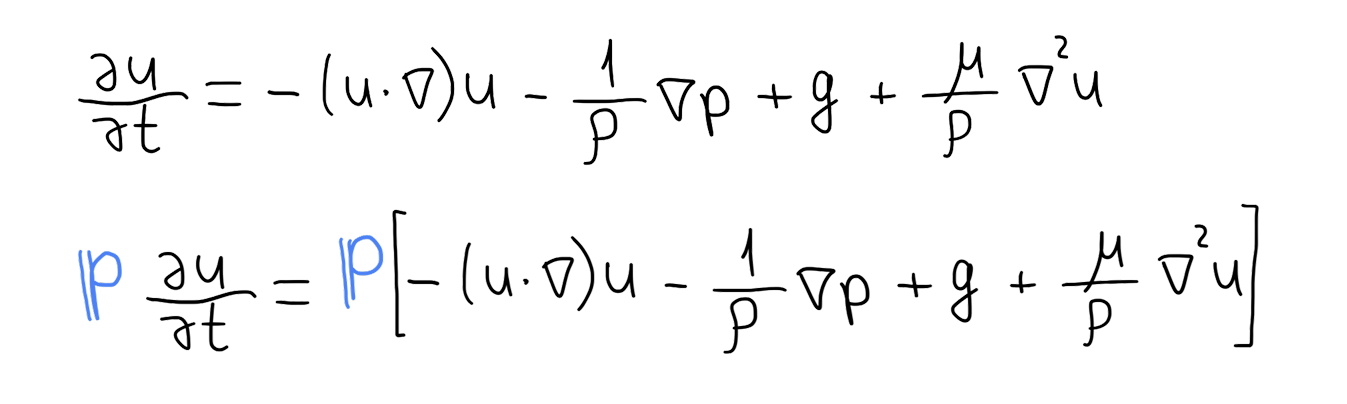 ∂u/∂t = - (u·∇)u - 1/ρ ∇p + g + μ/ρ ∇²u
ℙ ∂u/∂t = ℙ[- (u·∇)u - 1/ρ ∇p + g + μ/ρ ∇²u]